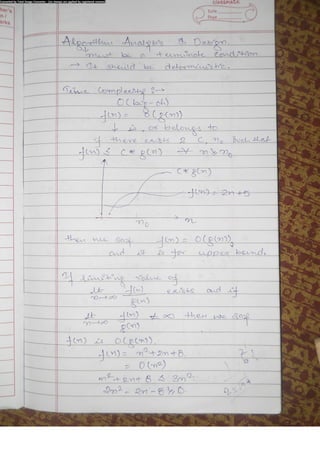 classmate
Date
Page
Algorithm Analysis & Design
must be a terminate condition
→ It should be deterministic.
Time Complexity :→
O (big-oh)
f(n) = O(g(n))
↓ is, or belongs to
if there exists 2 C, n₀ such that
f(n) ≤ C * g(n) ∀ n ≥ n₀
C * g(n)
f(n) = 2n+5
n₀ n
then we say f(n) = O(g(n))
and it is for upper bound.
If limiting value of
lt n→∞ f(n)/g(n) exists and if
lt n→∞ f(n)/g(n) ≠ ∞ then we say
f(n) is O(g(n)).
f(n) = n²+2n+8
= O(n²)
n²+2n+8 ≤ 3n²
2n²-2n-8 ≥ 0